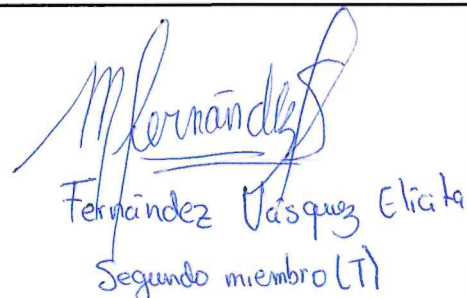 MFernándezS
Fernández Vásquez Elicita
Segundo miembro (T)